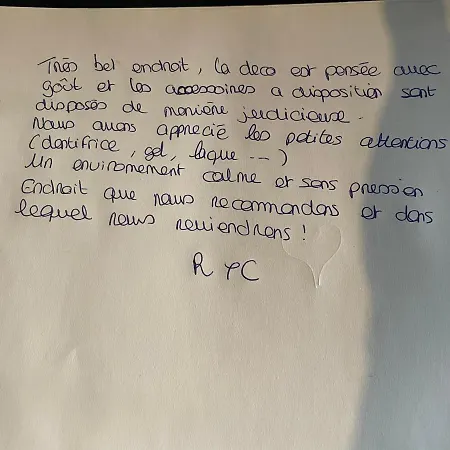 Très bel endroit, la deco est pensée avec
goût et les accessoires a disposition sont
disposés de manière judicieuse.
Nous avons apprecié les petites attentions
(dentifrice, gel, laque ---)
Un environnement calme et sans pression
Endroit que nous recommandons et dans
lequel nous reviendrons !
R + C